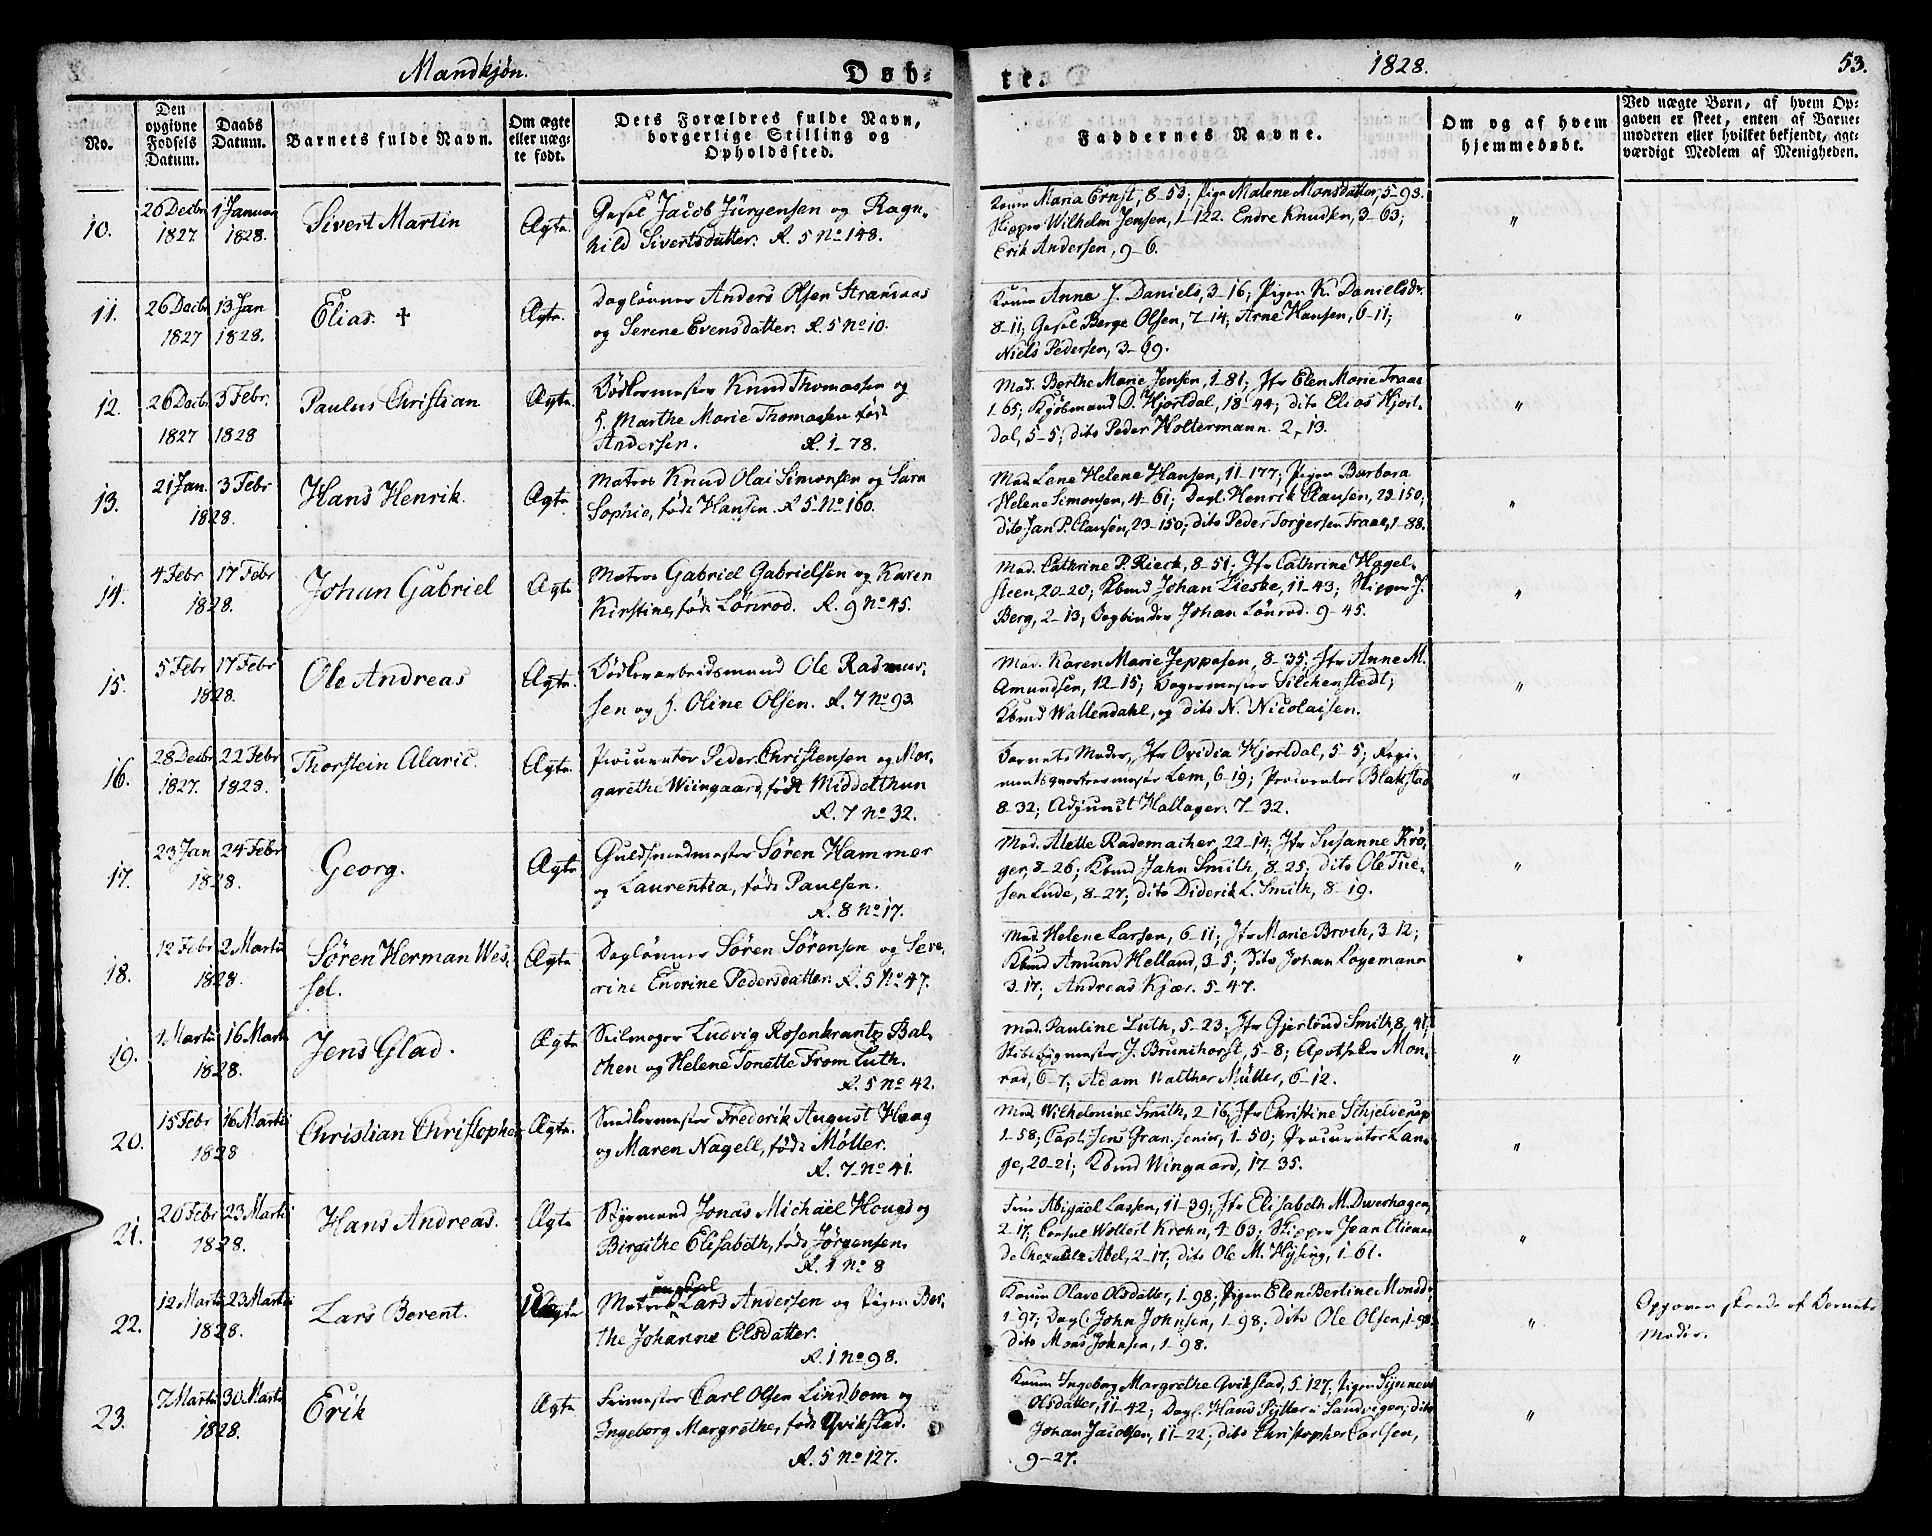 Mandkjøn. Døb-
No.
Den opgivne Fødsels Datum.
Daabs Datum.
Barnets fulde Navn.
Om ægte eller uægte født.
Dets Forældres fulde Navn, borgerlige Stilling og Opholdssted.
10. 26 Decbr 1827 1 Januar 1828. Sivert Martin Ægte.
Gesel Jacob Jürgensen og Ragn-
hild Sivertsdatter. R. 5 No 148.
11. 26 Decbr 1827 13 Jan 1828. Elias. † Ægte.
Daglønner Anders Olsen Strandaas
og Serene Evensdatter. R. 5 No 10.
12. 26 Decbr 1827 3 Febr. 1828 Paulus Christian Ægte.
Bödkermester Knud Thomassen og
H. Marthe Marie Thomassen föd
Andersen. R. 1-78.
13. 21 Jan. 3 Febr 1828. Hans Henrik. Ægte.
Matros Knud Olai Simonsen og Sara
Sophie, föde Hansen. R 5-No 160.
14. 4 Febr 17 Febr 1828. Johan Gabriel Ægte
Matros Gabriel Gabrielsen og Karen
Kirstine, föde Lönrod. R. 9 No 45.
15. 5 Febr 17 Febr 1828. Ole Andreas Ægte.
Bödkerarbeidsmand Ole Rasmus-
sen og H. Oline Olsen. R. 7 No 93.
16. 28 Decbr 1827. 22 Febr 1828. Thorstein Alaric. Ægte.
Procurator Peder Christensen og Mar-
garethe Wiingaard, födt Middelthun
R. 7 No 32.
17. 23 Jan 24 Febr 1828. Georg. Ægte
Guldsmedmester Søren Hammer
og Laurentia, föde Paulsen.
R. 8 No 17.
18. 12 Febr 2 Martii 1828. Søren Herman Wes-
sel. Ægte
Daglønner Søren Sørensen og Seve-
rine Endrine Pedersdatter. R. 5 No 47.
19. 2 Martii 16 Martii 1828. Jens Glad. Ægte
Seilmager Ludvig Rosenkrantz Bal-
chen og Helene Tonette From Luth.
R. 5 No 42.
20. 15 Febr 16 Martii 1828 Christian Christopher Ægte.
Snedkermester Frederik August Haag
og Maren Nagell, föde Møller.
R. 7-No 41.
21. 20 Febr 23 Martii 1828. Hans Andreas. Ægte
Styrmand Jonas Michael Houge og
Birgithe Elisabeth, föde Jørgensen.
R. 1 No 8
22. 12 Martii 23 Martii 1828. Lars Berent. Uægte
ungkarl
Matros Lars Andersen og Pigen Ber-
the Johanne Olsdatter.
R. 1 No 98.
23. 7 Martii 30 Martii 1828. Erik Ægte
Carl Olsen Lindbom og
Ingeborg Margrethe, föde Qvikstad.
R. 5 No 127.
te. 1828. 53.
Faddernes Navne.
Om og af hvem hjemmedøbt.
Ved uægte Børn, af hvem Op-
gaven er skeet, enten af Barne-
moderen eller hvilket bekjendt, agt-
værdigt Medlem af Menigheden.
Konen Maria Ernst, 8-53; Pige Malene Monsdatter, 5-93.
Skipper Wilhelm Jensen, 1-122. Endre Knudsen, 3-63;
Erik Andersen, 9-6. "
Konen Anne J. Daniels, 3-16; Pigen K. Danielsdr.
8-11; Gesel Berge Olsen, 7-14; Arne Hansen, 6-11;
Niels Pedersen, 3-69. "
Mad. Berthe Marie Jensen, 1-81; Jfr Elen Marie Traae
1-65; Kjøbmand D. Hjortdal, 18-44; dito Elias Hjort-
dal, 5-5; dito Peder Woltermann. 2-13. "
Mad. Lene Helene Hansen, 11-177; Pigen Barbara
Helene Simonsen, 4-61; Dagl. Henrik Clausen, 23-150;
dito Jan P. Clausen, 23-150; dito Peder Torgersen Traae, 1-88. "
Mad. Cathrine P. Rieck, 8-51; Jfr Cathrine Hagel-
steen, 20-20; Kbmd Johan Lieske, 11-43; Skipper J.
Berg, 2-13; Bogbinder Johan Lönrod. 9-45. "
Mad. Karen Marie Jeppesen, 8-35; Jfr Anne M.
Amundsen, 12-15; Bagermester Silchenstedt;
Kbmd Wallendahl, og dito N. Nicolaisen. "
Barnets Moder, Jfr Ovidia Hjortdal, 5-5; Regi-
mentsqvartermester Lem, 6-19; Procurator Blakstad
8-32; Adjunct Hallager. 7-32. "
Mad. Alette Rademacher, 22-14; Jfr Susanne Krø-
ger, 8-26; Kbmd Jahn Smith, 8-25; dito Ole Tue-
sen Lude, 8-27; dito Diderik L. Smith, 8-19. "
Mad. Helene Larsen, 6-11; Jfr Marie Broch, 3-12;
Kbmd Amund Helland, 3-5; dito Johan Logemann
3-17; Andreas Kjær. 5-47. "
Mad. Pauline Luth, 5-23; Jfr Gjertrud Smith, 8-41;
J. Brunchorst, 5-8; Apotheker Mon-
rad, 6-7; Adam Walther Müller, 6-12. "
Mad. Wilhelmine Smith, 2-16; Jfr Christine Schjelderup
1-58; Capt. Jens Gran senior, 1-50; Procurator Lan-
ge, 20-21; Kbmd Wingaard, 17-35. "
Abigael Lassen, 11-39; Jfr Elisabeth M. Dwerhagen
2-17; Consul Wollert Krohn, 4-63; Skipper Jean Etienne
de Chezaulx Abel, 2-17; dito Ole M. Hysing, 1-61. "
Konen Olave Olsdatter, 1-98; Pigen Elen Bertine Monsdr,
1-97; Dagl. John Johnsen, 1-98; dito Ole Olsen, 1-98;
dito Mons Johnsen, 1-98. "
Opgaven skeede af Barnets
Moder.
Konen Ingeborg Margrethe Qvikstad, 5-127; Pigen
Olsdatter, 11-42; Dagl. Hans i Sandvigen; dito
Johan Jacobsen, 11-22; dito Christopher Carlsen,
9-27. "